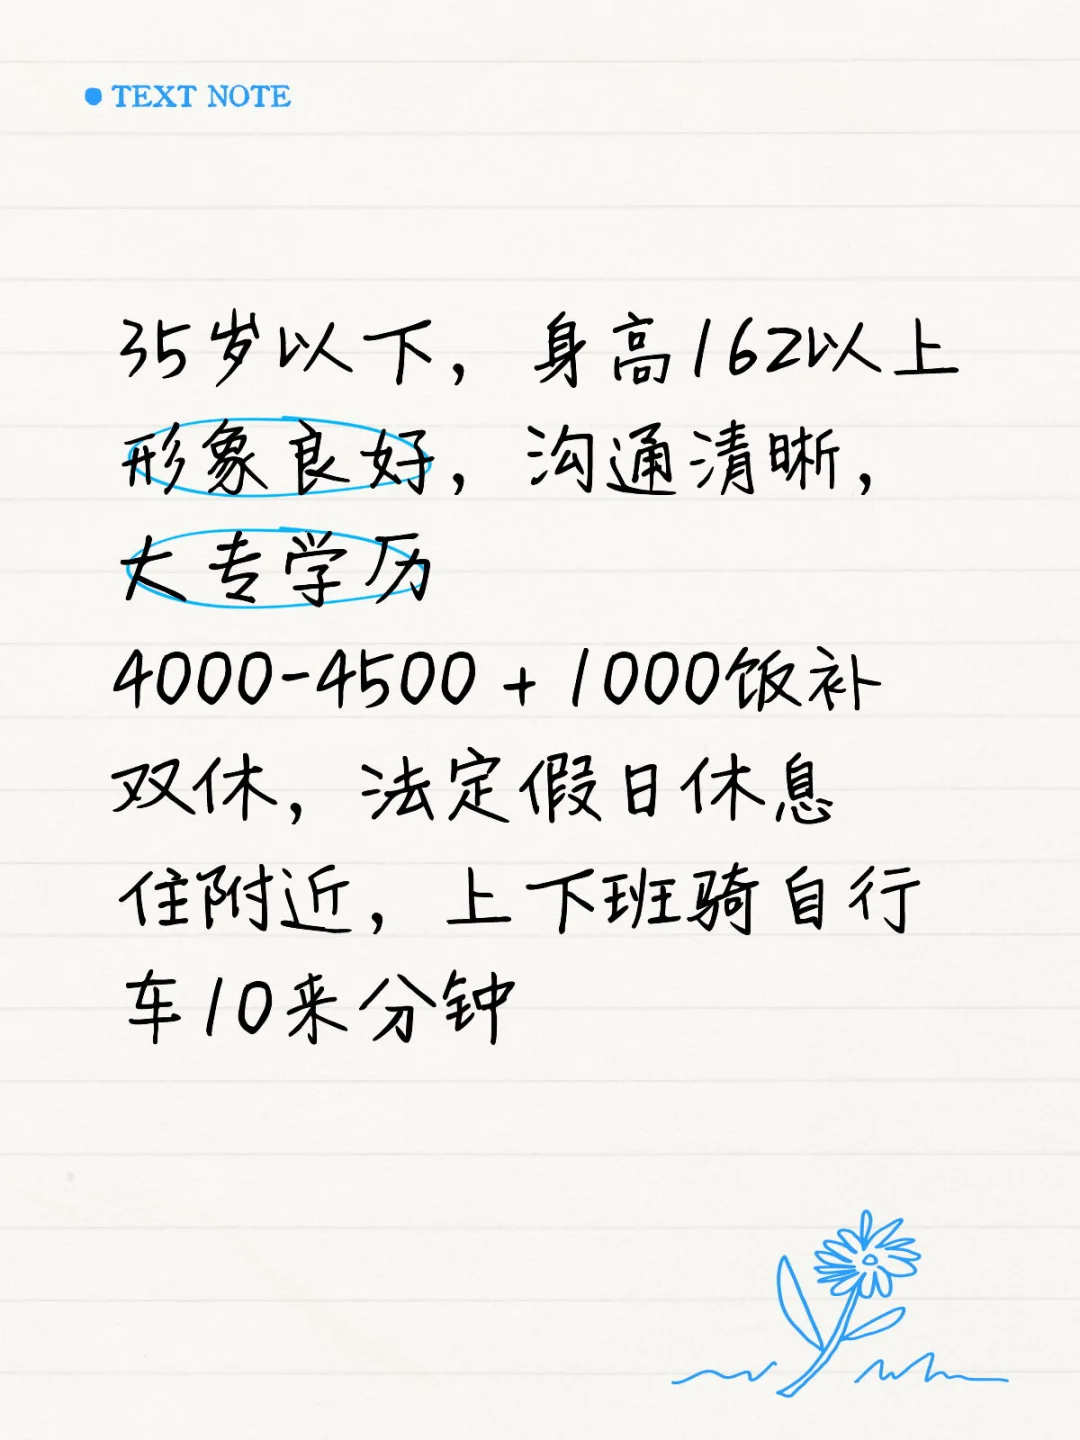 TEXT NOTE
35岁以下，身高162以上
形象良好，沟通清晰，
大专学历
4000-4500 + 1000饭补
双休，法定假日休息
住附近，上下班骑自行
车10来分钟